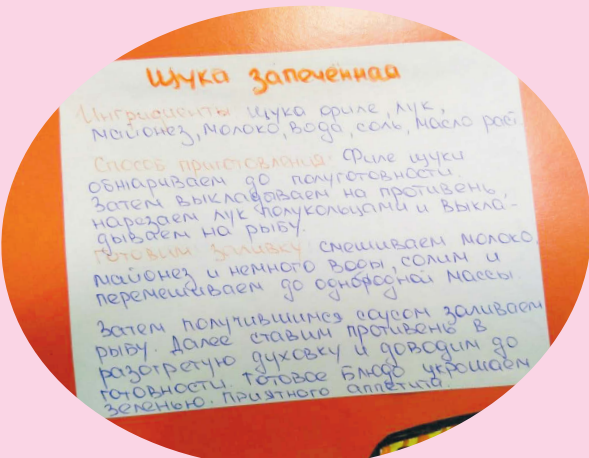 Щука запеченная
Ингридиенты: Щука филе, лук,
майонез, молоко, вода, соль, масло раст.
Способ приготовления: Филе щуки
обжариваем до полуготовности.
Затем выкладываем на противень,
нарезаем лук полукольцами и выкла-
дываем на рыбу.
Готовим заливку: смешиваем молоко,
майонез и немного воды, солим и
перемешиваем до однородной массы.
Затем получившимся соусом заливаем
рыбу. Далее ставим противень в
разогретую духовку и доводим до
готовности. Готовое блюдо украшаем
зеленью. Приятного аппетита.